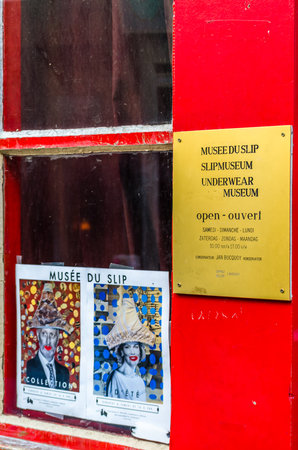 MUSEE DU SLIP
SLIPMUSEUM
UNDERWEAR
MUSEUM
open - ouvert
SAMEDI - DIMANCHE - LUNDI
ZATERDAG - ZONDAG - MAANDAG
CONSERVATEUR JAN BUCQUOY KONSERVATOR
MUSÉE DU SLIP
COLLECTION
D'ÉTÉ